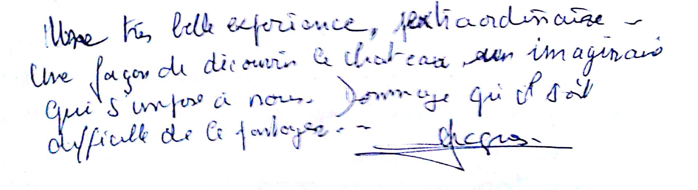 Une très belle expérience, extraordinaire -
Une façon de découvrir le chateau, un imaginaire
qui s'impose à nous. Dommage qu'il soit
difficile de le partager. -